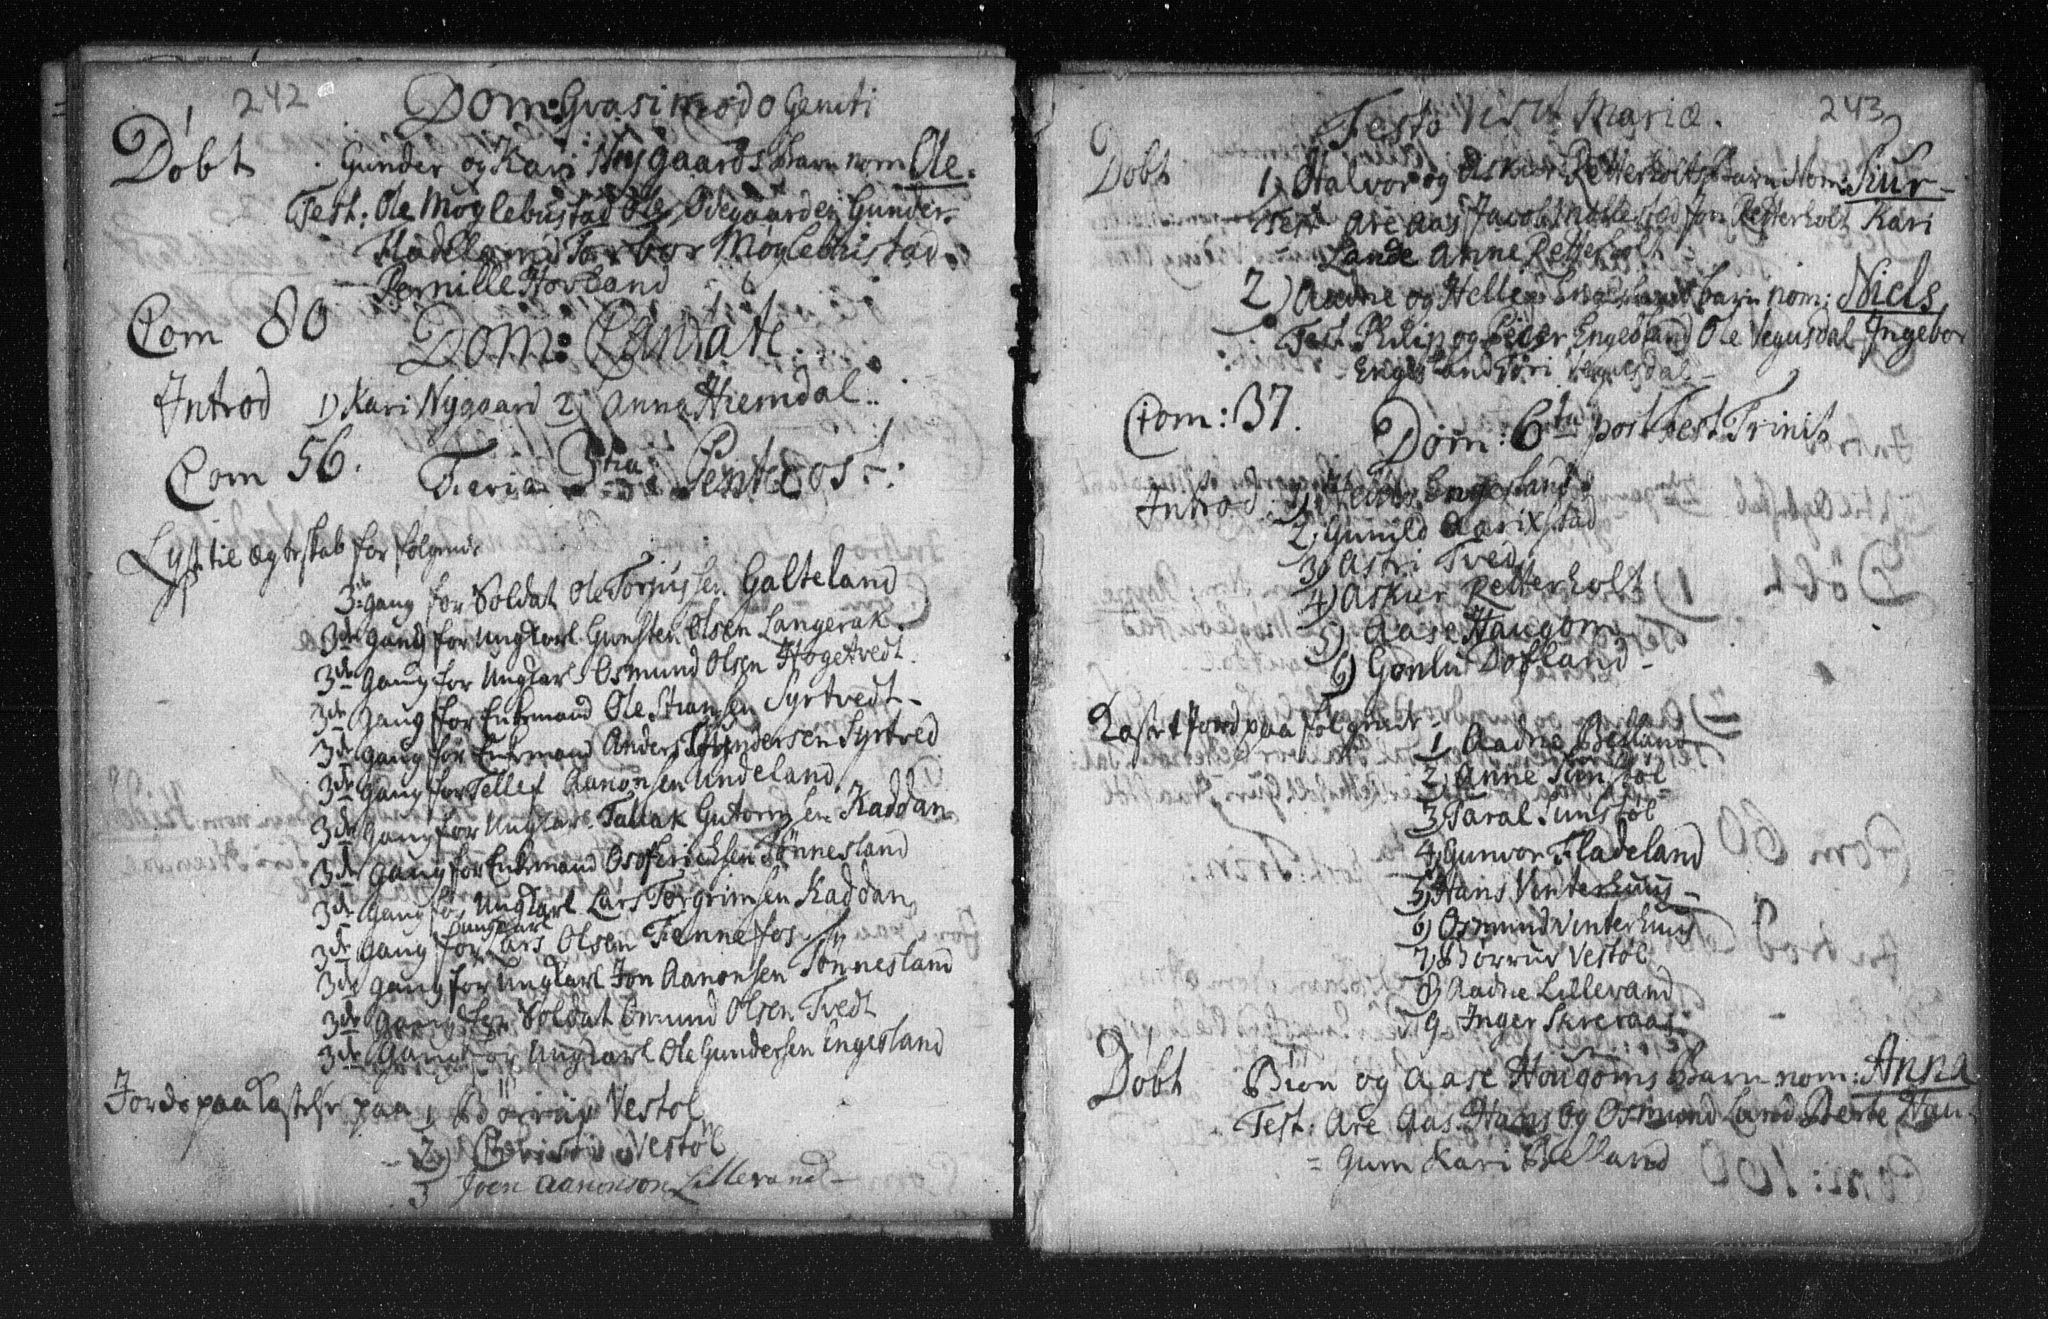 242
Dom: Gvasimodo Geniti
Døbt Gunder og Kari Nygaards Barn nom Ole.
Test: Ole Møglebustad Ole Ødegaarden Gunder
Fladeland Torbor Møglebustad
Pernille Hovland
Com 80
Dom: Cantate
Introd 1) Kari Nygaard 2) Anna Hiemdal
Com 56.
Feria 3tia Pentecost:
Lyst til Ægteskab for følgende
3die gang for Soldat Ole Torjussen Galteland
3de gang for Ungkarl Gunsten Olsen Langerak.
3de gang for Ungkarl Osmund Olsen Høgetvedt.
3de gang for Enkemand Ole Syrtvedt
3de gang for Enkemand Anders Syrtved
3de gang for Tellef Aanonsen Undeland
3de gang for Ungkarl Tallak Gutormsen Kaddan
3de gang for Enkemand Tønnesland
3de gang for Ungkarl Lars Torgrimsen Kaddan
Ungkarl
3de gang for Lars Olsen Fennefos
3de gang for Ungkarl Jon Aanonsen Tønnesland
3de gang for Soldat Omund Olsen Tvedt
3de gang for Ungkarl Ole Gundersen Engesland
Jords paakastelse paa 1 Vestøl
2) Vestøl
3 Joen Aanonson Lillevand
243
Festo Visit Mariæ.
Døbt 1) Halvor og Askier Retterholts Barn Nom:
Test Are Aas Jacob Jon Retterholt Kari
Lande Anne Retterholt
2) Aadne og Helle Engeslands barn nom: Niels
Test Philip og Peder Engesland Ole Vegusdal Ingebor
Engesland Vegusdal
Com: 37.
Dom: 6ta post Fest Trinit
Introd: 1) Engesland
2. Gunild
3) Astri Tved
4) Askier Retterholt
5) Aase Haugom
6) Gonlu Dofland
Kastet Jord paa følgende
1 Aadne Belland
2) Anne Sunstøl
3) Taral Sunstøl
4) Gunvor Fladeland
5) Hans Vinterhuus
6) Osmund Vinterhuus
7) Vestøl
8) Aadne Lillevand
9 Inger Skreraas
Døbt Biøn og Aase Hougoms Barn nom: Anna
Test: Are Aas Hans og Osmund Land Berte Hou
= gum Kari Belland